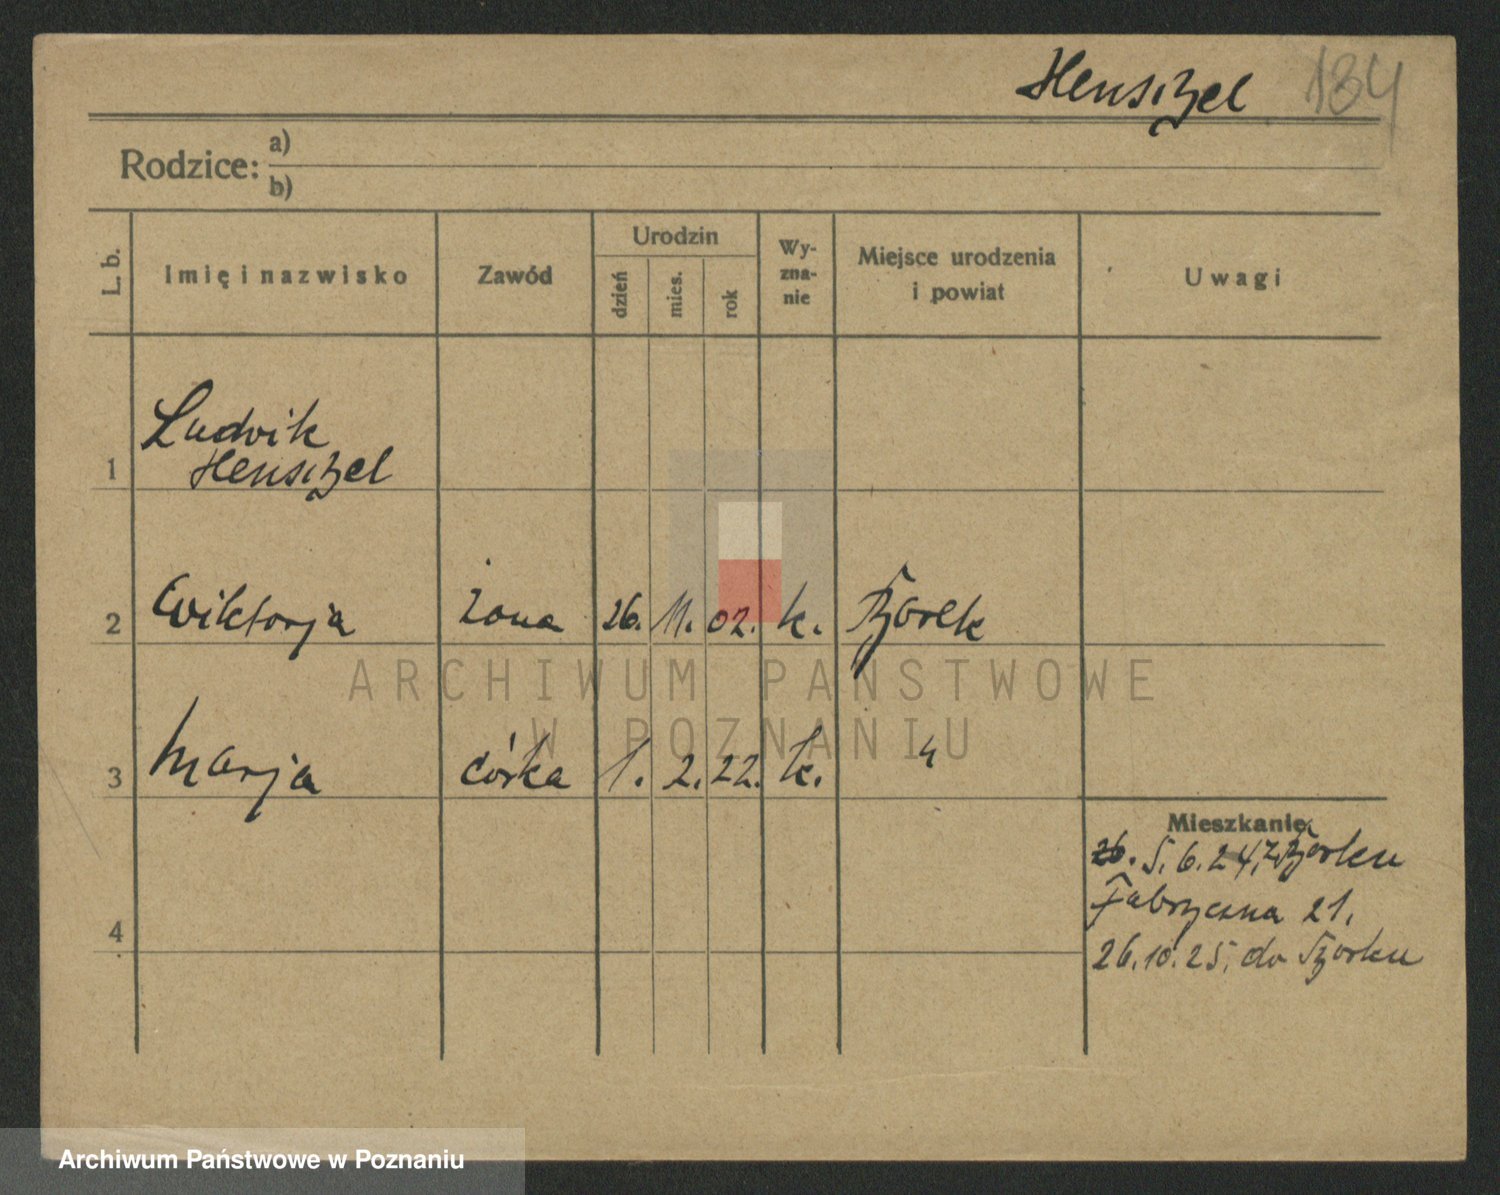 Henschel 134
Rodzice: a)
b)
L. b.
Imię i nazwisko
Zawód
Urodzin
dzień
mies.
rok
Wy-
zna-
nie
Miejsce urodzenia
i powiat
Uwagi
1 Ludwik
Henschel
2 Wiktorja żona 26. 11. 02. k. Borek
3 Marja córka 1. 2. 22. k. "
4
Mieszkanie
26. 5. 6. 24, z Borku
Fabryczna 21.
26. 10. 25. do Borku
ARCHIWUM PAŃSTWOWE
W POZNANIU
Archiwum Państwowe w Poznaniu